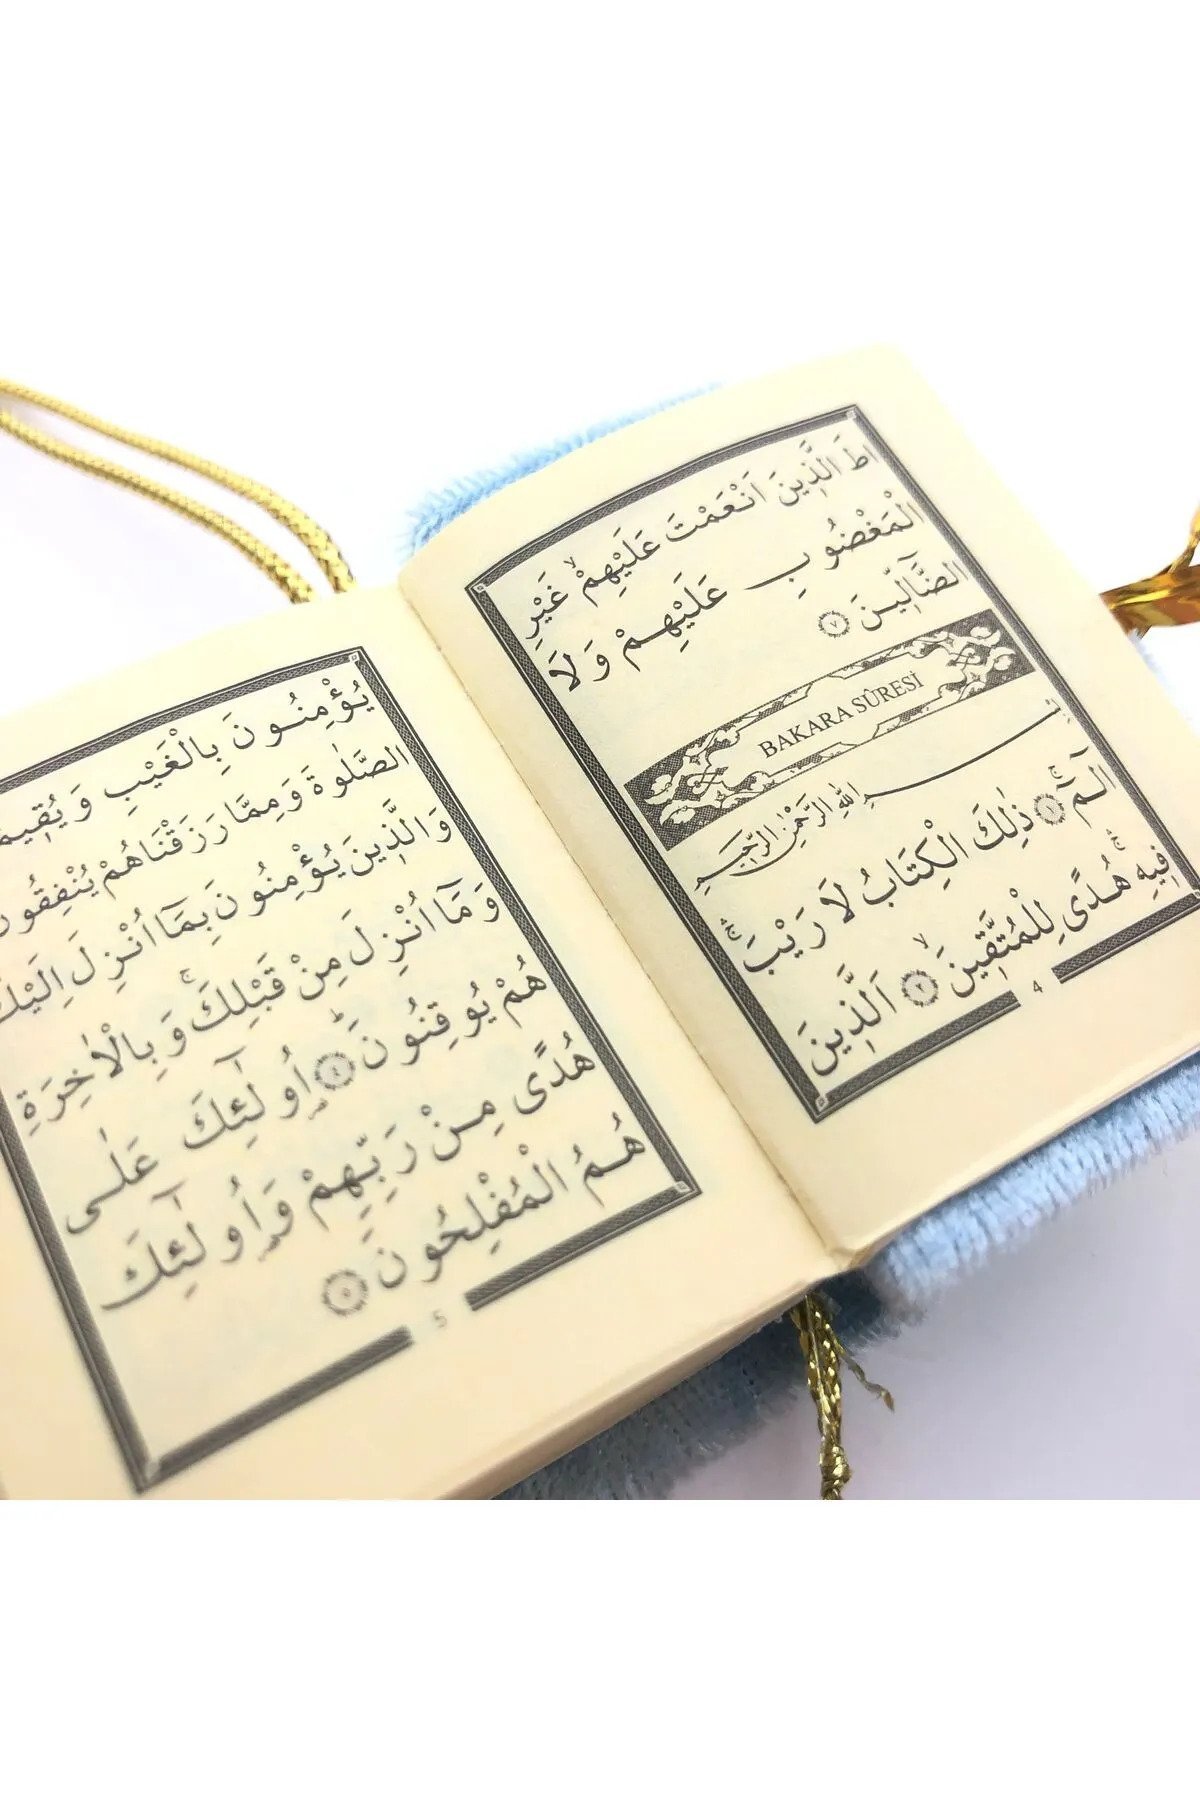 اطَ الَّذِينَ اَنْعَمْتَ عَلَيْهِمْۙ غَيْرِ
الْمَغْضُوبِ عَلَيْهِمْ وَلَا
الضَّٓالّ۪ينَ ﴿٧﴾
BAKARA SÛRESİ
بِسْمِ اللّٰهِ الرَّحْمٰنِ الرَّح۪يمِ
الٓمٓۚ ﴿١﴾ ذٰلِكَ الْكِتَابُ لَا رَيْبَۚ
ف۪يهِۚ هُدًى لِلْمُتَّق۪ينَۙ ﴿٢﴾ اَلَّذ۪ينَ
4
يُؤْمِنُونَ بِالْغَيْبِ وَيُق۪يمُ
الصَّلٰوةَ وَمِمَّا رَزَقْنَاهُمْ يُنْفِقُونَ
وَالَّذ۪ينَ يُؤْمِنُونَ بِمَٓا اُنْزِلَ اِلَيْكَ
وَمَٓا اُنْزِلَ مِنْ قَبْلِكَۚ وَبِالْاٰخِرَةِ
هُمْ يُوقِنُونَۜ ﴿٤﴾ اُو۬لٰٓئِكَ عَلٰى
هُدًى مِنْ رَبِّهِمْ وَاُو۬لٰٓئِكَ
هُمُ الْمُفْلِحُونَ ﴿٥﴾
5